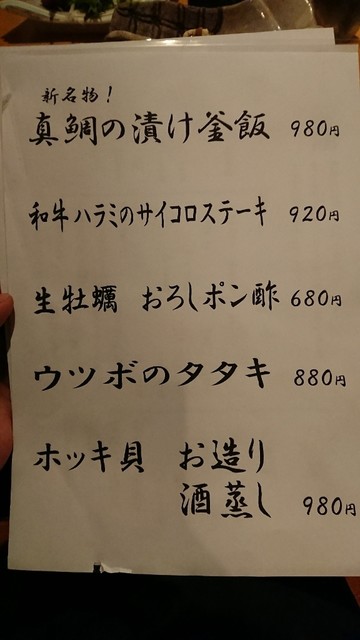 新名物！
真鯛の漬け釜飯 980円
和牛ハラミのサイコロステーキ 920円
生牡蠣 おろしポン酢 680円
ウツボのタタキ 880円
ホッキ貝 お造り
酒蒸し 980円